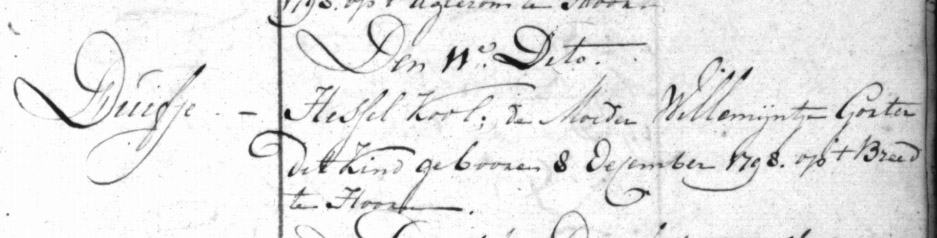 1798. op t agterom te Hoorn
Den 11e. Dito.
Duifje - Hessel Kool; de Moeder Willemijntje Goster
dit Kind gebooren 8 December 1798. op t Breed
te Hoorn.